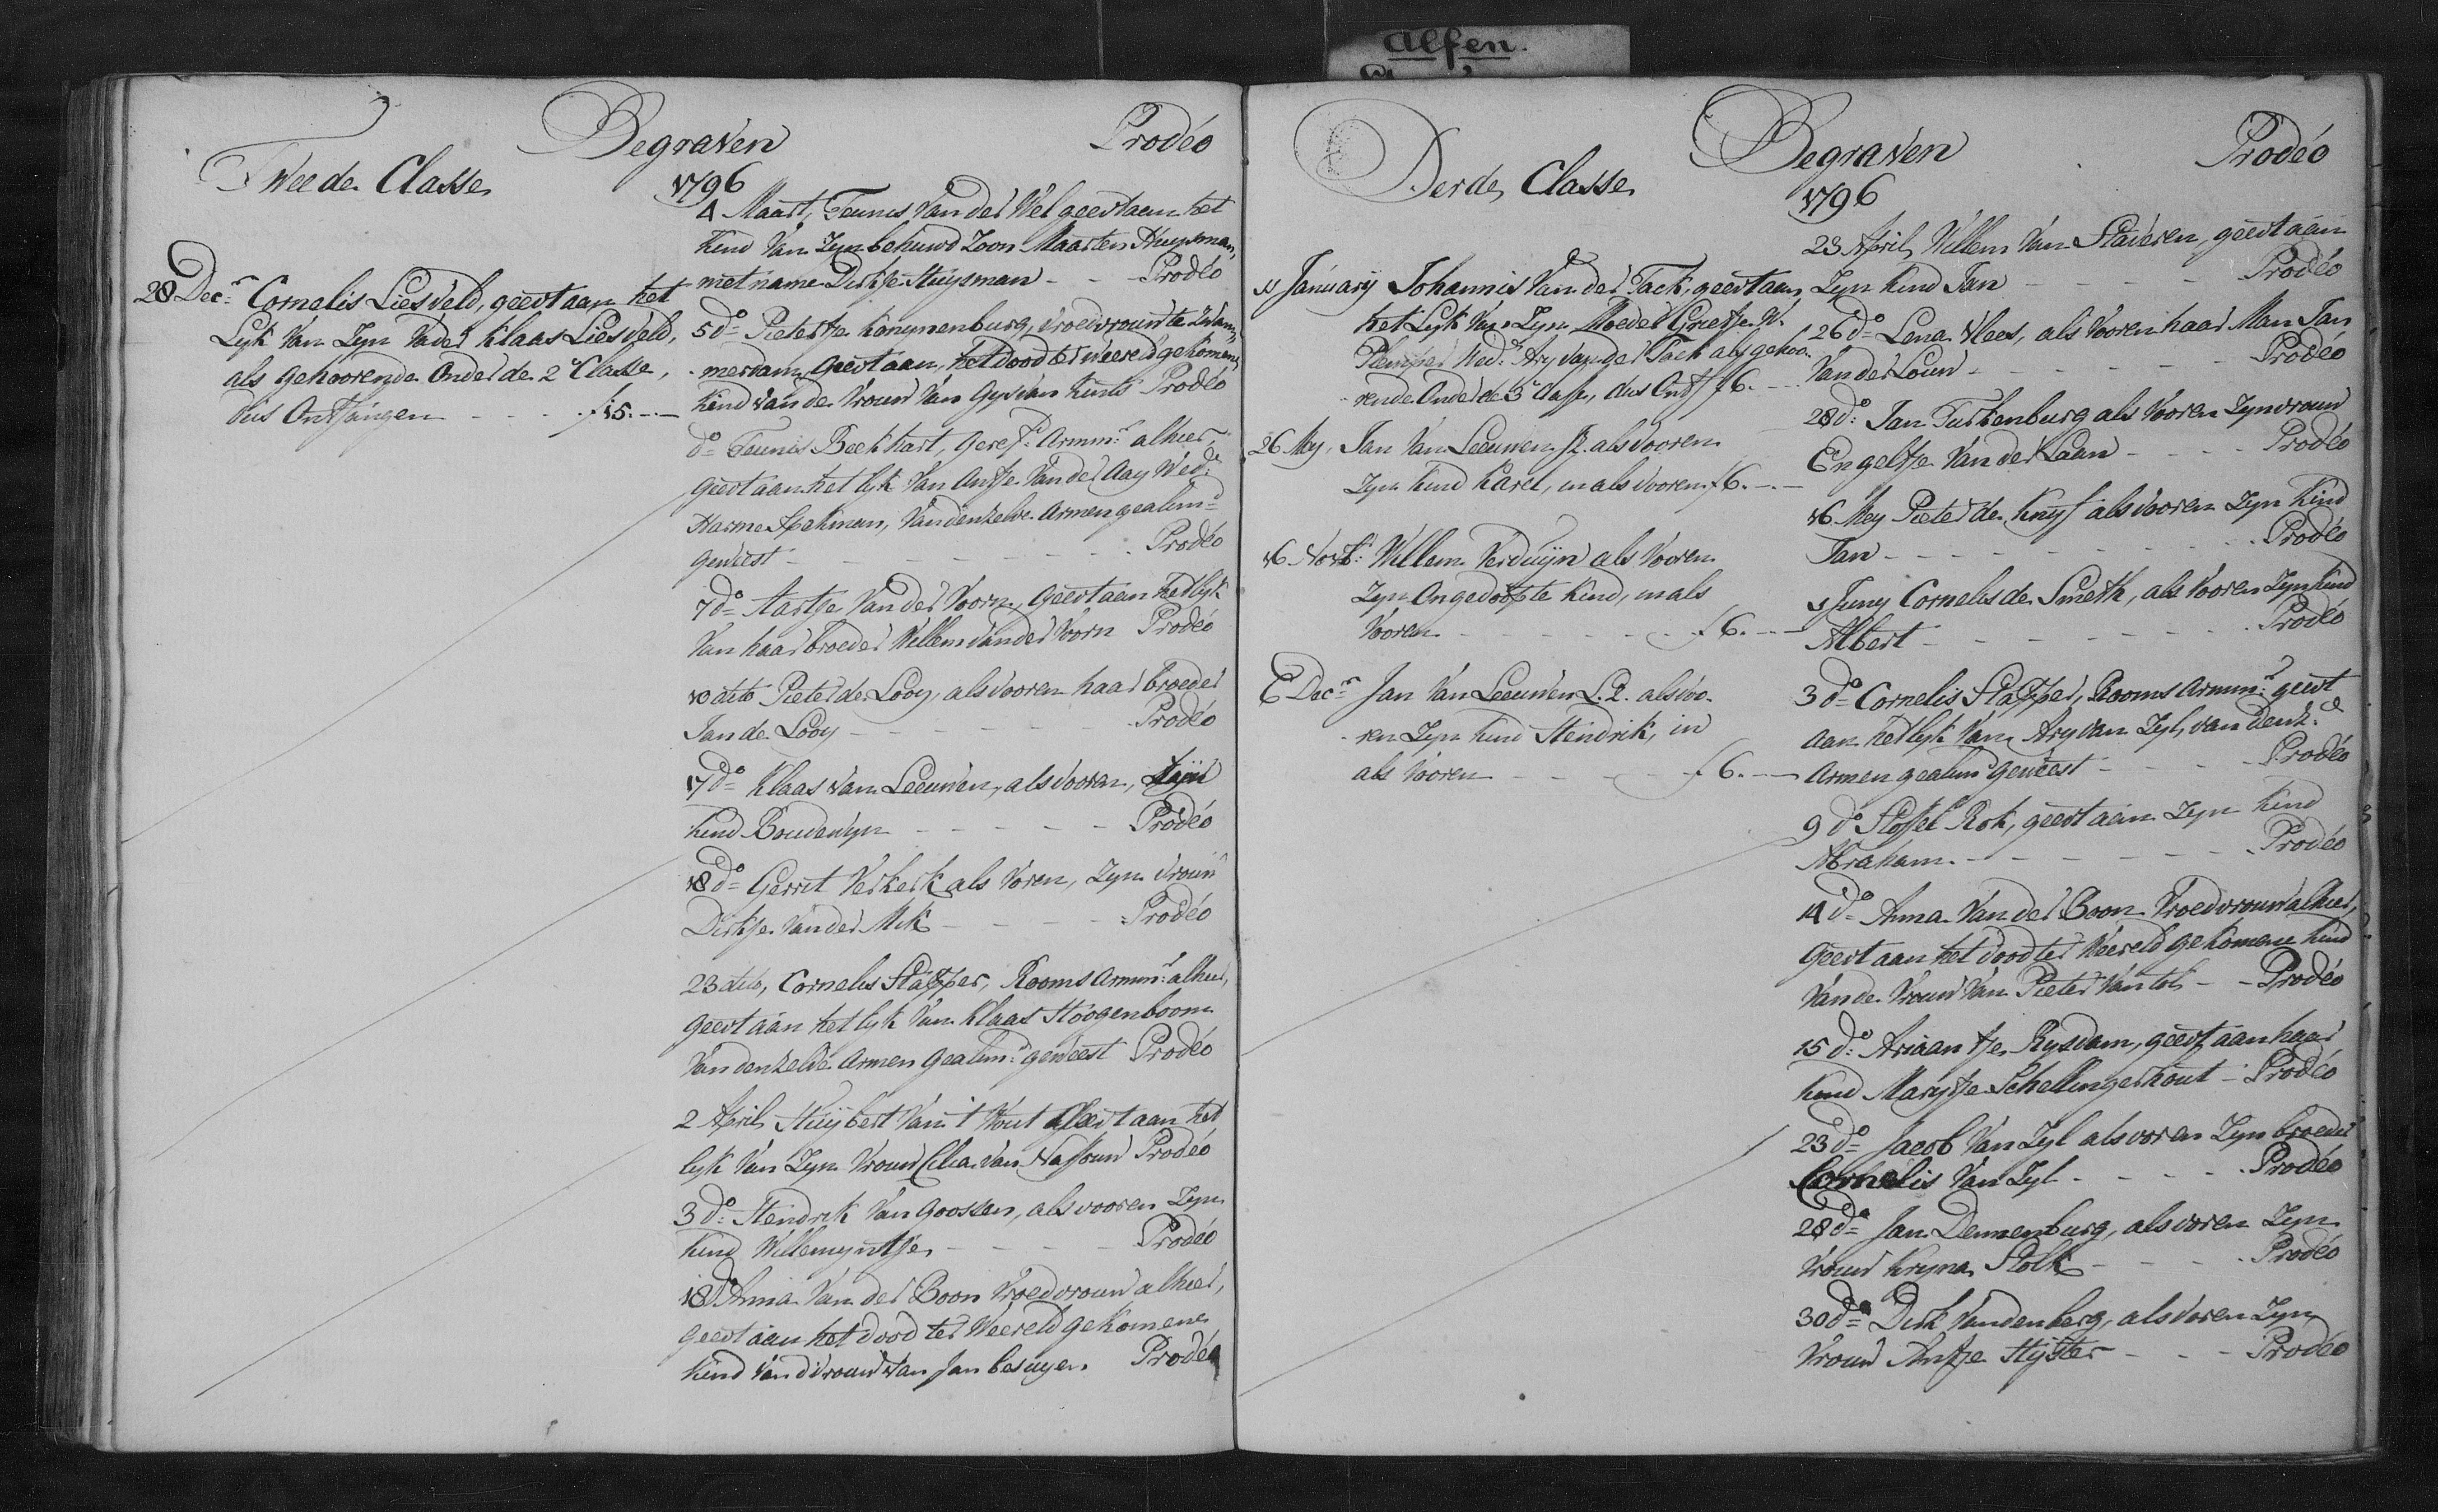 Alfen.
Begraven
Prodéo
Tweede Classe
1796
28 Decr. Cornelis Liesveld, geevt aan het
Lyk van Zyn Vader Klaas Liesveld,
als gehoorende Onder de 2e Classe,
dus Ontfangen - - - f 15.-.-
4 Maart, Teunis van der Wel geevt aan het
kind van Zyn behuwd Zoon Maarten Huysman,
met name Dirkje Huysman - - Prodéo
5 do. Pietertje Konynenburg, vroedvrouw te Zwam-
merdam, Geevt aan, het dood ter weereld gekomen
kind van de vrouw van Gys van Prodéo
do. Teunis Beekhart, Geref. Armmr. alhier,
geevt aan het lyk van Antje van der Aay Wede.
Harme Spekman, van denzelve Armen gealimd.
geweest - - - - - Prodéo
7 do. Aartje van der Voorn, Geevt aan het lyk
van haar broeder Willem van der Voorn Prodéo
10 dito Pieter de Looy, als vooren haar broeder
Jan de Looy - - - - - Prodéo
17 do. Klaas van Leeuwen, als vooren, zyn
kind Boudewyn - - - - - Prodéo
18 do. Gerrit Verkerk als Voren, Zyn vrouw
Dirkje van der Mik - - - - Prodéo
23 dito, Cornelis Stapper, Rooms Armmr. alhier,
geevt aan het lyk van Klaas Hoogenboom
van denzelve Armen Gealimd. geweest Prodéo
2 April Huybert van 't Wout Geevt aan het
lyk van Zyn Vrouw Celia van Nassouw Prodéo
3 do. Hendrik van Goossen, als vooren Zyn
kind Willemyntje - - - - Prodéo
18 do Anna van der Boon Vroedvrouw alhier,
geevt aan het dood ter Weereld gekomene
kind van d' vrouw van Jan besuyen Prodéo
Begraven
Prodéo
Derde Classe
1796
11 January Johannis van der Tack, geevt aan
het Lyk van Zyn Moeder Grietje W.
Plemper Wede. Ary van der Tack als gehoo-
rende Onder de 3e Classe, dus Ontf f 6.-.-
26 Mey, Jan van Leeuwen als vooren
Zyn kind Karel, in als vooren f 6.-.-
16 Novb: Willem Verduyn als vooren
Zyn Ongedoopte kind, in als
Vooren - - - - - f 6.-.-
Decr. Jan van Leeuwen L.Z. als voo-
ren Zyn kind Hendrik, in
als Vooren - - - - f 6.-.-
23 April, Willem van Staveren, geevt aan
Zyn kind Jan - - - - Prodéo
26 do. Lena Vlees, als Vooren haar Man Jan
van der Louw - - - - - Prodéo
28 do. Jan Turkenburg als Vooren Zyn vrouw
Engeltje van der Laan - - - - Prodéo
16 Mey Pieter de Knyf als vooren Zyn kind
Jan - - - - - - Prodéo
1 Juny Cornelis de Smeth, als Vooren Zyn kind
Albert - - - - - - Prodéo
3 do. Cornelis Stapper, Rooms Armmr. geevt
aan het lyk van Ary van Zyl, van denz.e
Armen gealimd geweest - - - - Prodéo
9 do Stoffel Rok, geevt aan Zyn kind
Abraham - - - - - - Prodéo
14 do. Anna van der Boon Vroedvrouw alhier,
Geevt aan het dood ter Weereld gekomene kind
van de Vrouw van Pieter van tol - - Prodéo
15 do. Ariaantje Rysdam, geevt aan haar
kind Marytje Schellingerhout - Prodéo
23 do. Jacob van Zyl als voren Zyn broeder
Cornelis van Zyl - - - - Prodéo
28 do. Jan Dennenburg, als voren Zyn
Vrouw Kryna Stolk - - - - Prodéo
30 do. Dirk van den berg, als Voren Zyn
Vrouw Antje Hyster - - - Prodéo